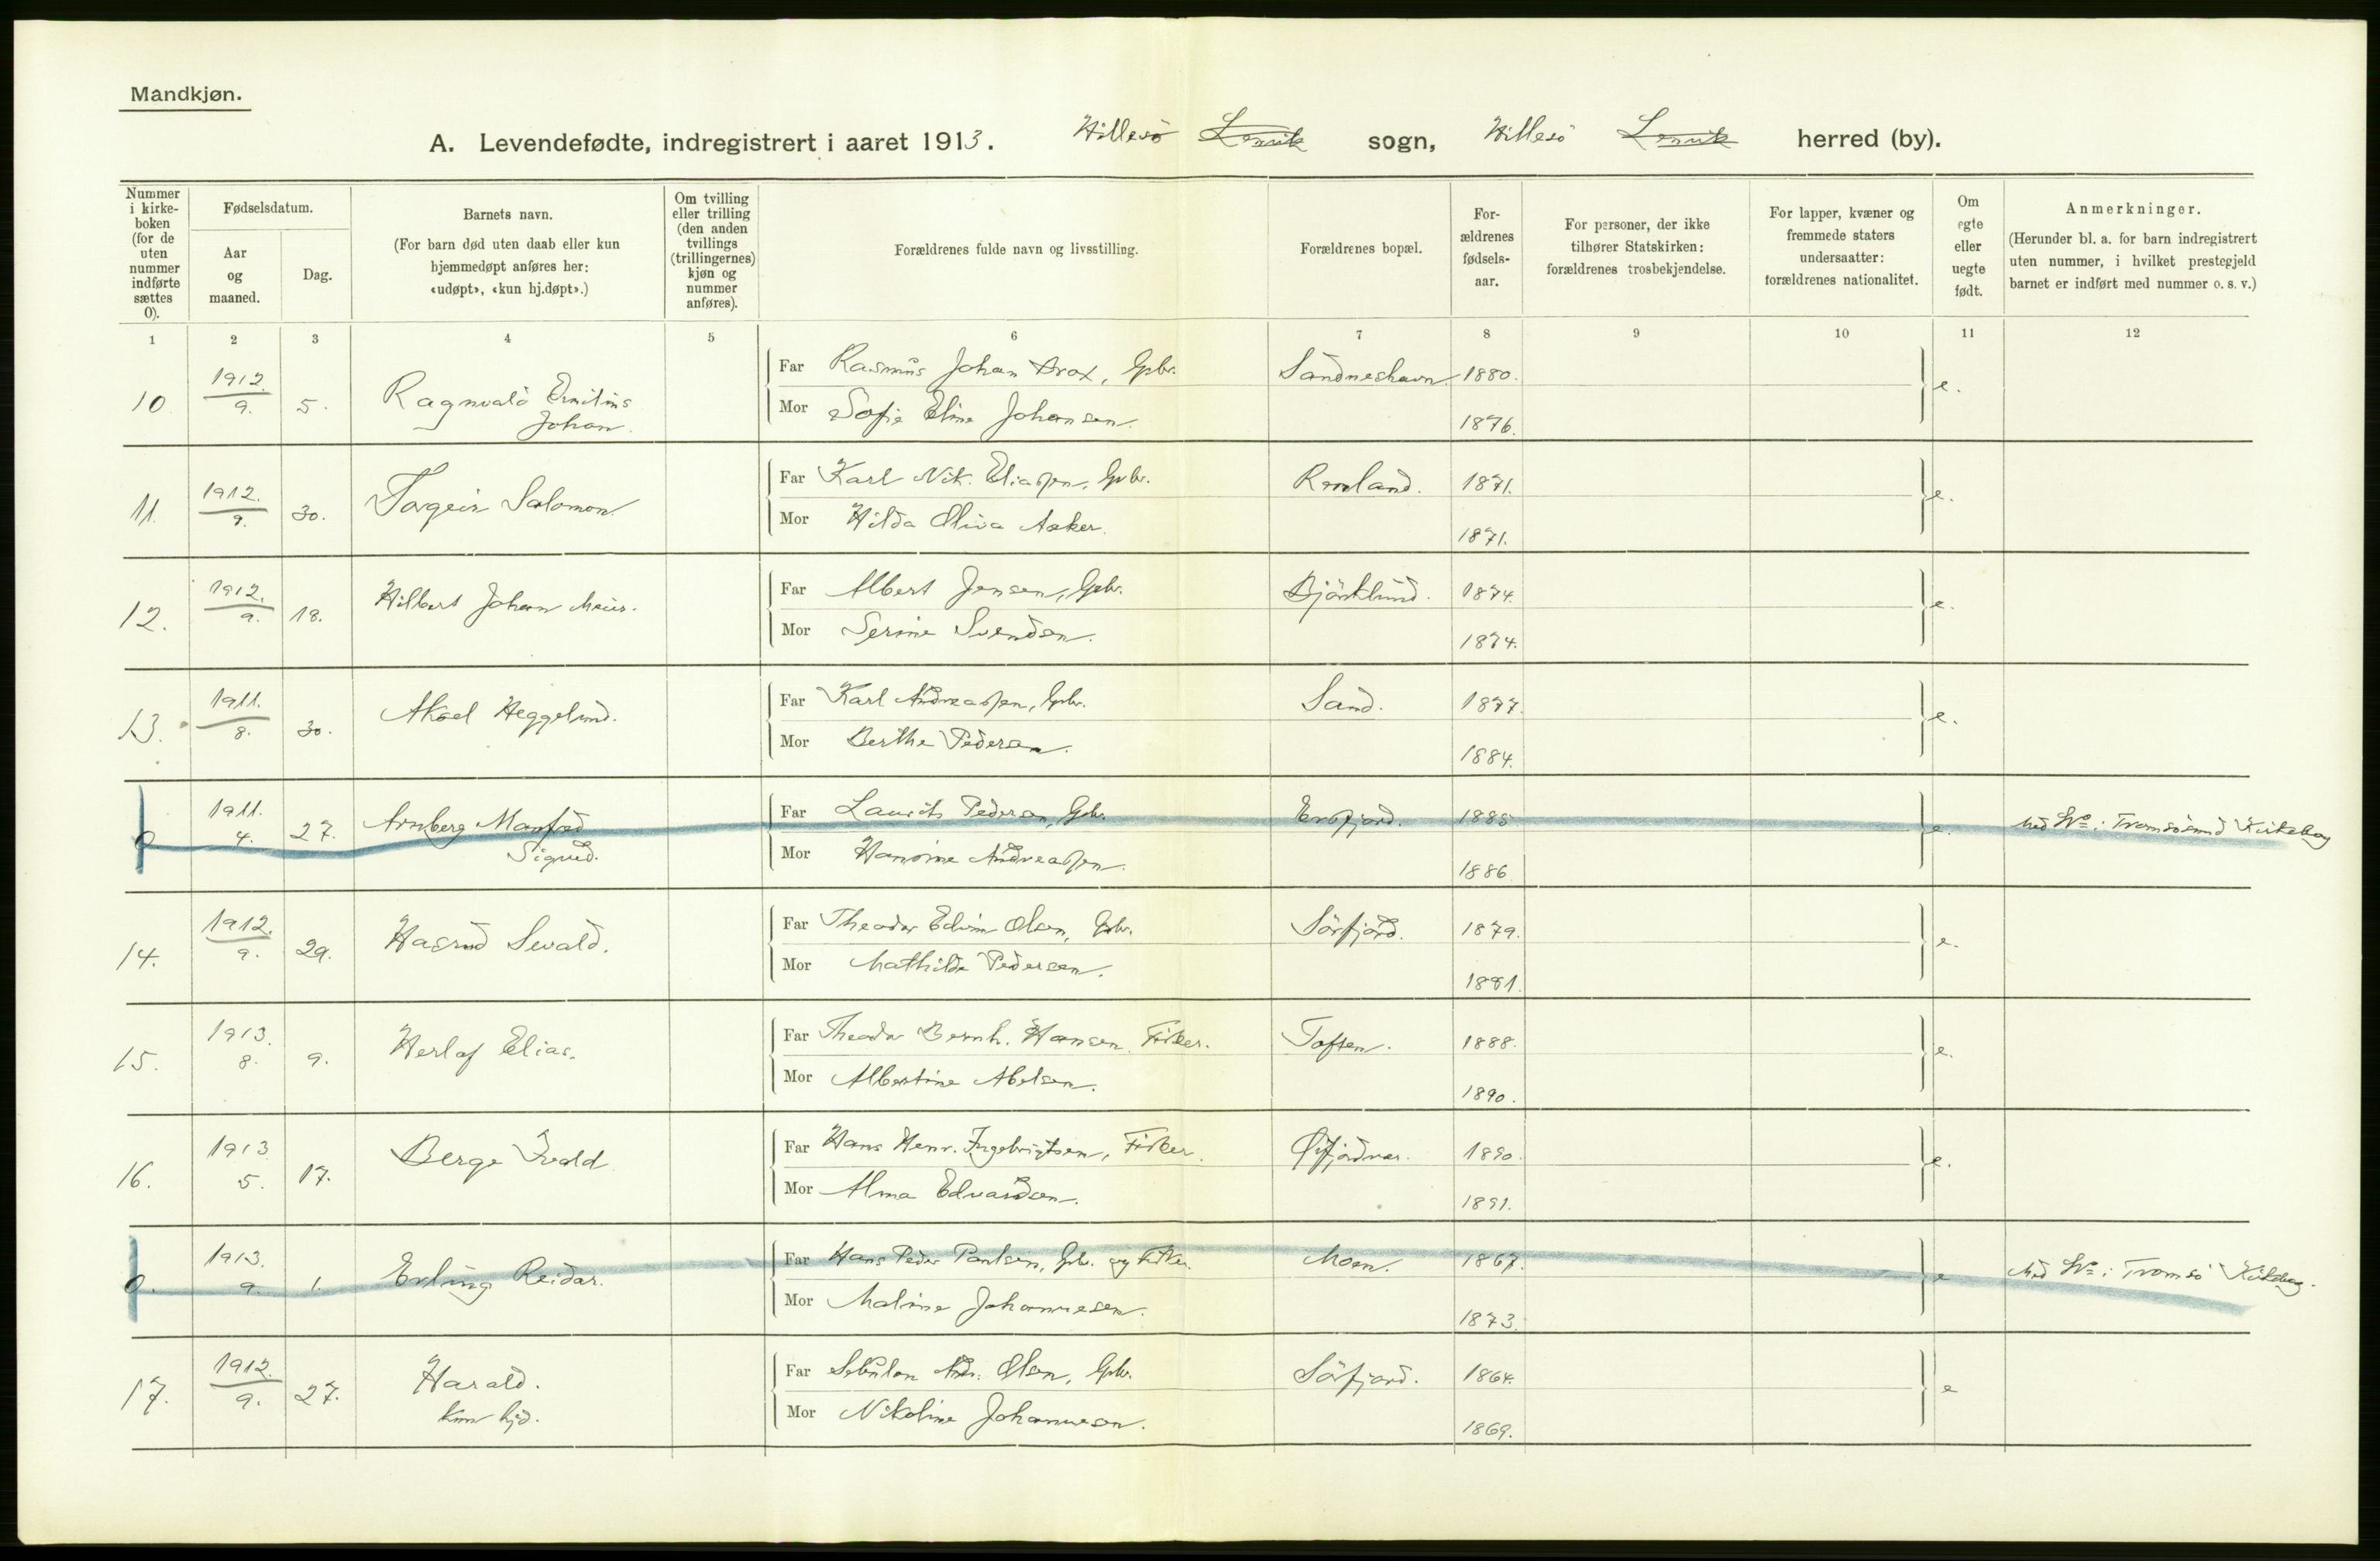 Mandkjøn.
A. Levendefødte, indregistrert i aaret 1913. Hillesö Lenvik sogn, Hillesö Lenvik herred (by).
Nummer i kirke-boken (for de uten nummer indførte sættes 0).
Fødselsdatum.
Aar og maaned.
Dag.
Barnets navn.
(For barn død uten daab eller kun hjemmedøpt anføres her: «udøpt», «kun hj.døpt».)
Om tvilling eller trilling (den anden tvillings (trillingernes) kjøn og nummer anføres).
Forældrenes fulde navn og livsstilling.
Forældrenes bopæl.
For-ældrenes fødsels-aar.
For personer, der ikke tilhører Statskirken: forældrenes trosbekjendelse.
For lapper, kvæner og fremmede staters undersaatter: forældrenes nationalitet.
Om egte eller uegte født.
Anmerkninger.
(Herunder bl. a. for barn indregistrert uten nummer, i hvilket prestegjeld barnet er indført med nummer o. s. v.)
1 2 3 4 5 6 7 8 9 10 11 12
10. 1912. 9. 5. Ragnvald Emilius Johan.
Far Rasmus Johan Brox, Gbr. Sandneshavn 1880. e.
Mor Sofie Eline Johansen. 1876.
11. 1912. 9. 30. Torgeir Salomon.
Far Karl Nik. Eliassen, Gbr. 1871. e.
Mor Hilda Oliva Asker. 1871.
12. 1912. 9. 18. Hilbert Johan Meier.
Far Albert Jensen, Gbr. Björklund. 1874. e.
Mor Serine Svendsen. 1874.
13. 1911. 8. 30. Aksel Heggelund.
Far Karl Andreassen, Gbr. Sand. 1877. e.
Mor Berthe Pedersen. 1884.
0 1911. 4. 27. Arnberg Manfred Sigurd.
Far Laurits Pedersen, Gbr. Ersfjord. 1885 e. Med No i Tromsösund Kirkebog
Mor Hansine Andreassen. 1886
14. 1912. 9. 29. Sevald.
Far Theodor Edvin Olsen, Gbr. Sörfjord. 1879. e.
Mor Mathilde Pedersen. 1881.
15. 1913. 8. 9. Herlof Elias.
Far Theodor Bernh. Hansen, Fisker. Toften. 1888. e.
Mor Albertine Abelsen. 1890.
16. 1913 5. 17. Berge Ivald
Far Hans Henr. Ingebrigtsen, Fisker. 1890. e.
Mor Alma Edvardsen. 1891.
0. 1913. 9. 1. Erling Reidar.
Far Hans Peder Paulsen, Gbr. og Fisker. Moen. 1867. e Med No i Tromsö Kirkebog.
Mor Maline Johannesen. 1873.
17. 1912. 9. 27. Harald.
kun hjd.
Far Sebulon And. Olsen, Gbr. Sörfjord. 1864. e
Mor Nikoline Johannesen. 1869.